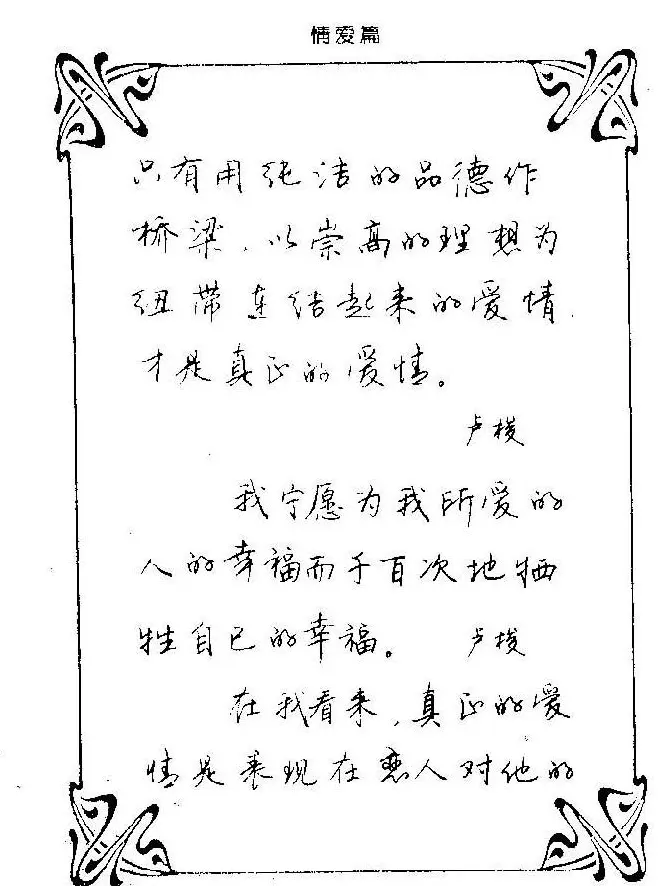 情爱篇
只有用纯洁的品德作
桥梁，以崇高的理想为
纽带连结起来的爱情，
才是真正的爱情。
卢梭
我宁愿为我所爱的
人的幸福而千百次地牺
牲自己的幸福。 卢梭
在我看来，真正的爱
情是表现在恋人对他的